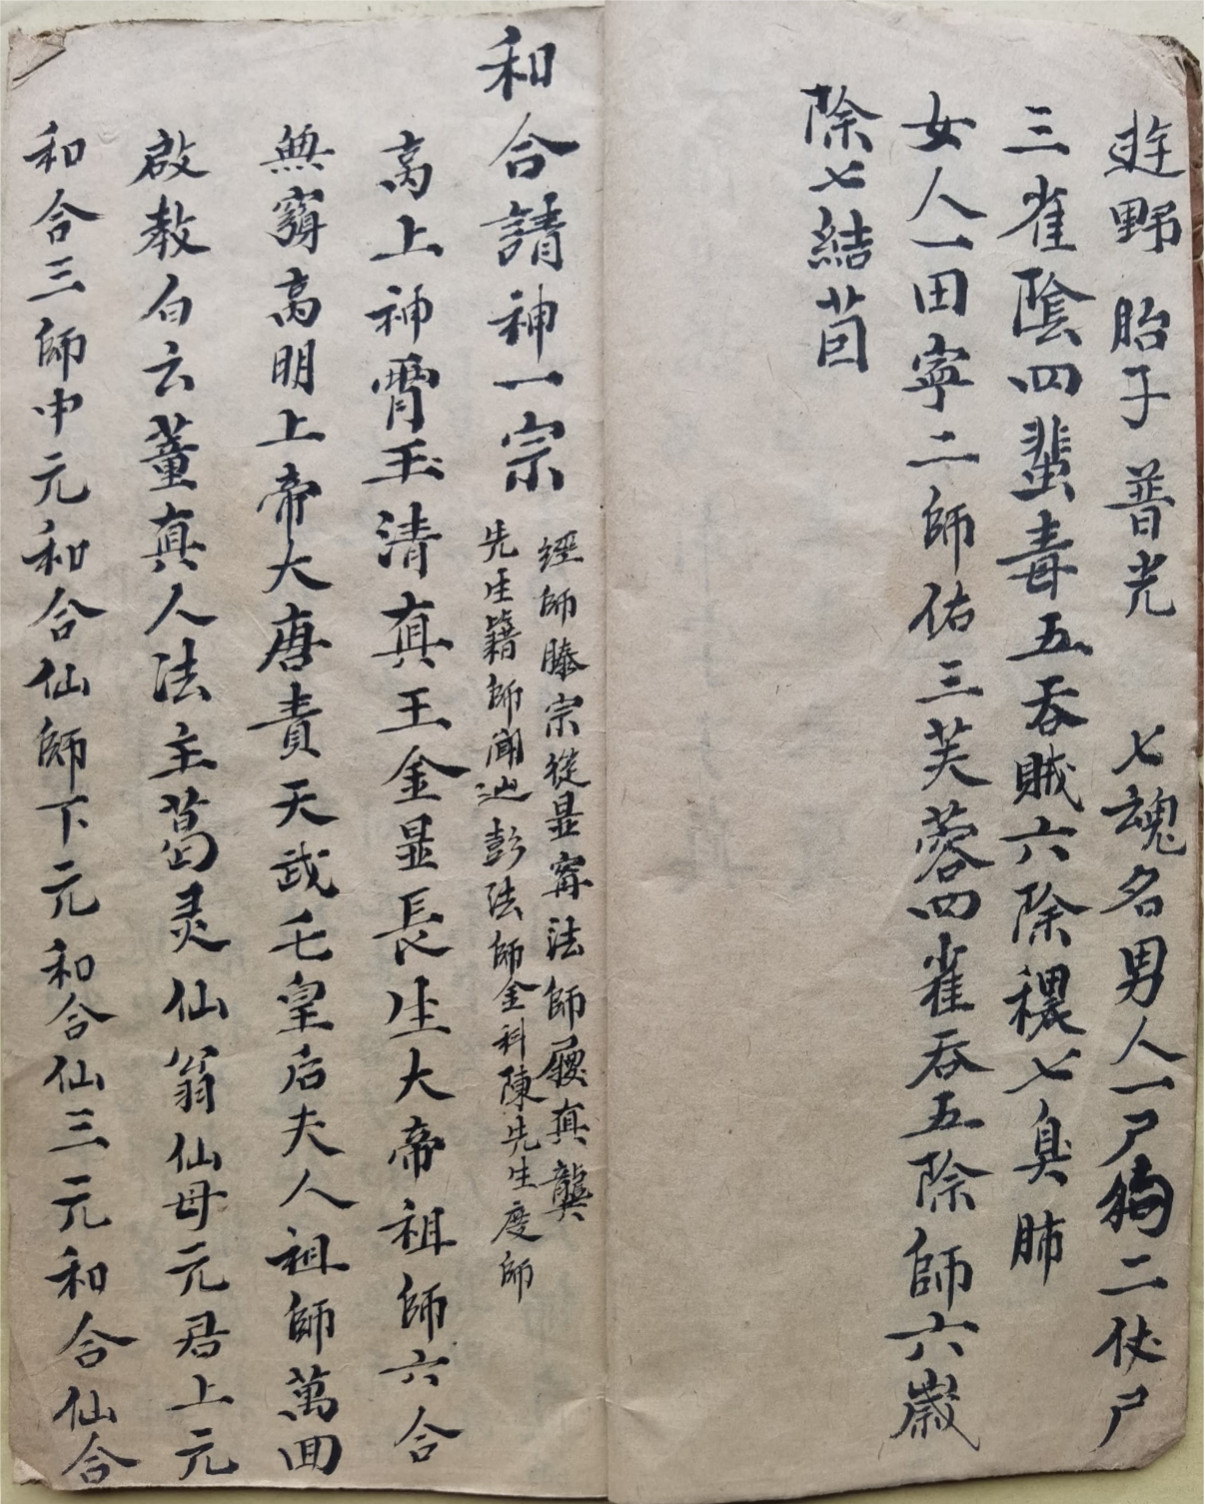 遊野 胎子 普光 七魂名男人一尸狗二伏尸
三雀陰四蜚毒五吞賊六除穢七臭肺
女人一田寧二師佑三芙蓉四雀吞五除師六歲
除七結茴
和合請神一宗
經師滕宗從显甯法師履真龔
先生籍師闻 彭法師金科陳先生度師
高上神霄玉清真王金显長生大帝祖師六合
無窮高明上帝大唐責天武毛皇后夫人祖師萬回
啟教白云董真人法主葛灵仙翁仙母元君上元
和合三師中元和合仙師下元和合仙三元和合仙合